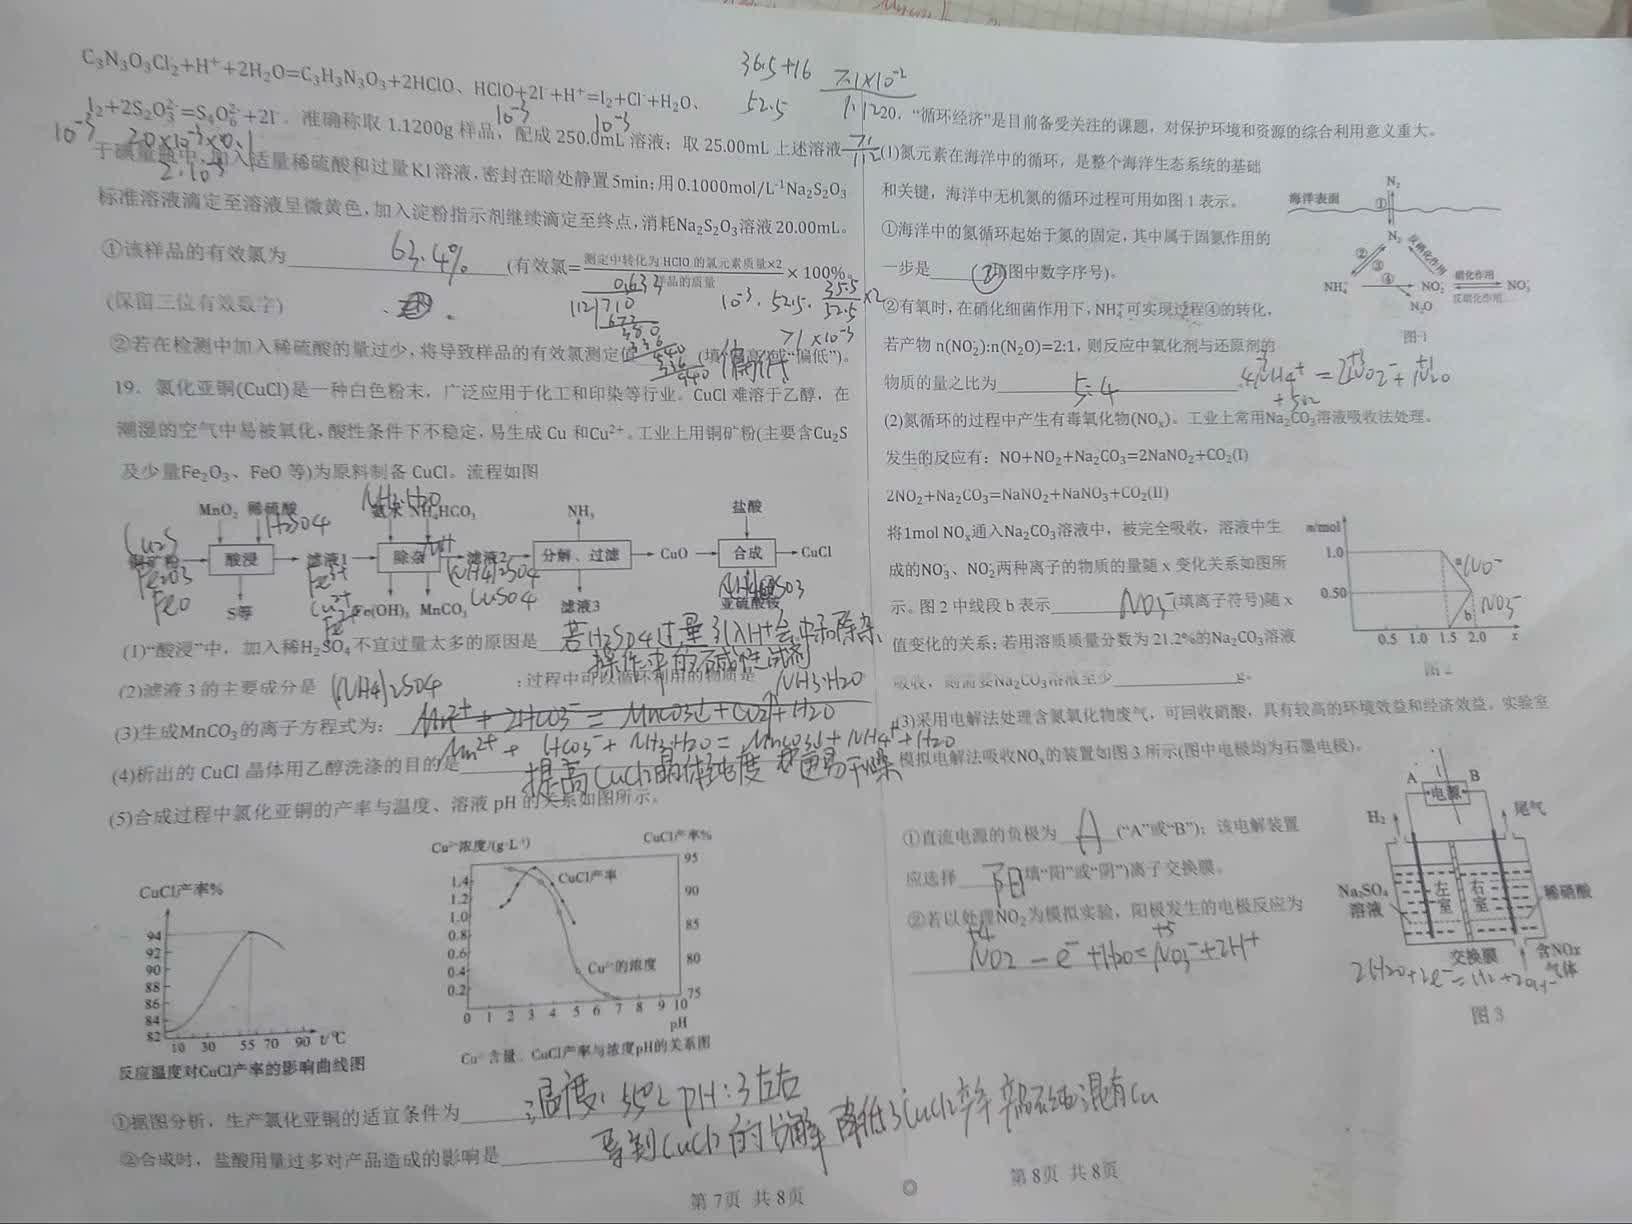 C₃N₃O₃Cl₂+H⁺+2H₂O=C₃H₃N₃O₃+2HClO、HClO+2I⁻+H⁺=I₂+Cl⁻+H₂O、
I₂+2S₂O₃²⁻=S₄O₆²⁻+2I⁻。准确称取 1.1200g 样品，配成 250.0mL 溶液；取 25.00mL 上述溶液
于碘量瓶中，加入适量稀硫酸和过量KI溶液，密封在暗处静置5min；用0.1000mol/L⁻¹Na₂S₂O₃
标准溶液滴定至溶液呈微黄色，加入淀粉指示剂继续滴定至终点，消耗Na₂S₂O₃溶液20.00mL。
36.5+16
52.5
7.1×10⁻²
1.12
10⁻³
20×10⁻³×0.1
2.10³
10⁻³
10⁻³
71
112
①该样品的有效氯为 63.4% (有效氯=测定中转化为HClO的氯元素质量×2/样品的质量×100%。
(保留三位有效数字)
0.633
112 710
672
380
336
440
336
10⁻³·52.5·35.5/52.5×2
71×10⁻³
②若在检测中加入稀硫酸的量过少，将导致样品的有效氯测定值 偏低 (填"偏高"或"偏低")。
19．氯化亚铜(CuCl)是一种白色粉末，广泛应用于化工和印染等行业。CuCl难溶于乙醇，在
潮湿的空气中易被氧化，酸性条件下不稳定，易生成 Cu 和Cu²⁺。工业上用铜矿粉(主要含Cu₂S
及少量Fe₂O₃、FeO 等)为原料制备 CuCl。流程如图
MnO₂ 稀硫酸
H2SO4
NH3·H2O
氨水 NH₄HCO₃
NH₃
盐酸
Cu2S
铜矿粉
酸浸
滤液1
除杂
滤液2
分解、过滤
CuO
合成
CuCl
Fe2O3
FeO
Fe3+
Cu2+
(NH4)2SO4
CuSO4
S等
Fe(OH)₃ MnCO₃
滤液3
亚硫酸铵
(1)"酸浸"中，加入稀H₂SO₄不宜过量太多的原因是 若H2SO4过量引入H+会中和除杂
操作中的碱性试剂
(2)滤液 3 的主要成分是 (NH4)2SO4 ；过程中可以循环利用的物质是 NH3·H2O
(3)生成MnCO₃的离子方程式为： Mn²⁺ + 2HCO3⁻ = MnCO3↓+CO2↑+H2O
Mn²⁺ + HCO3⁻ + NH3·H2O = MnCO3↓+NH4⁺+H2O
(4)析出的 CuCl 晶体用乙醇洗涤的目的是 提高CuCl2晶体纯度 易干燥
(5)合成过程中氯化亚铜的产率与温度、溶液 pH 的关系如图所示。
CuCl产率%
94
92
90
88
86
84
82
10 30 55 70 90 t/℃
反应温度对CuCl产率的影响曲线图
Cu²⁺浓度/(g·L⁻¹)
CuCl产率%
1.4
1.2
1.0
0.8
0.6
0.4
0.2
95
90
85
80
75
CuCl产率
Cu²⁺的浓度
0 1 2 3 4 5 6 7 8 9 10
pH
Cu²⁺含量、CuCl产率与浓度pH的关系图
①据图分析，生产氯化亚铜的适宜条件为 温度：55℃ pH：3左右
②合成时，盐酸用量过多对产品造成的影响是 导致CuCl2的分解 降低了CuCl2产率 混有Cu
第 7页 共 8页
20．"循环经济"是目前备受关注的课题，对保护环境和资源的综合利用意义重大。
(1)氮元素在海洋中的循环，是整个海洋生态系统的基础
和关键，海洋中无机氮的循环过程可用如图 1 表示。
①海洋中的氮循环起始于氮的固定，其中属于固氮作用的
一步是 ② (图中数字序号)。
②有氧时，在硝化细菌作用下，NH₄⁺可实现过程④的转化，
若产物 n(NO₂⁻):n(N₂O)=2:1，则反应中氧化剂与还原剂的
物质的量之比为 5:4
4NH4⁺ = 2NO2⁻ + N2O
+5O2
N₂
海洋表面
①
N₂
②
③
④
反硝化作用
硝化作用
反硝化作用
NH₄⁺
NO₂⁻
NO₃⁻
N₂O
图 1
(2)氮循环的过程中产生有毒氧化物(NOₓ)。工业上常用Na₂CO₃溶液吸收法处理。
发生的反应有：NO+NO₂+Na₂CO₃=2NaNO₂+CO₂(I)
2NO₂+Na₂CO₃=NaNO₂+NaNO₃+CO₂(II)
将1mol NOₓ通入Na₂CO₃溶液中，被完全吸收，溶液中生
成的NO₃⁻、NO₂⁻两种离子的物质的量随 x 变化关系如图所
示。图 2 中线段 b 表示 NO3⁻ (填离子符号)随 x
值变化的关系；若用溶质质量分数为 21.2%的Na₂CO₃溶液
吸收，则需要Na₂CO₃溶液至少 g。
n/mol
1.0
0.50
a
b
NO3⁻
0.5 1.0 1.5 2.0 x
图 2
(3)采用电解法处理含氮氧化物废气，可回收硝酸，具有较高的环境效益和经济效益。实验室
模拟电解法吸收NOₓ的装置如图 3 所示(图中电极均为石墨电极)。
①直流电源的负极为 A ("A"或"B")；该电解装置
应选择 阳 (填"阳"或"阴")离子交换膜。
②若以处理NO₂为模拟实验，阳极发生的电极反应为
+4 +5
NO2 - e⁻ + H2O = NO3⁻ + 2H⁺
A B
电源
H₂
尾气
Na₂SO₄
溶液
左室
右室
稀硝酸
交换膜
含NOx
气体
2H2O+2e⁻=H2+2OH⁻
图 3
第 8页 共 8页